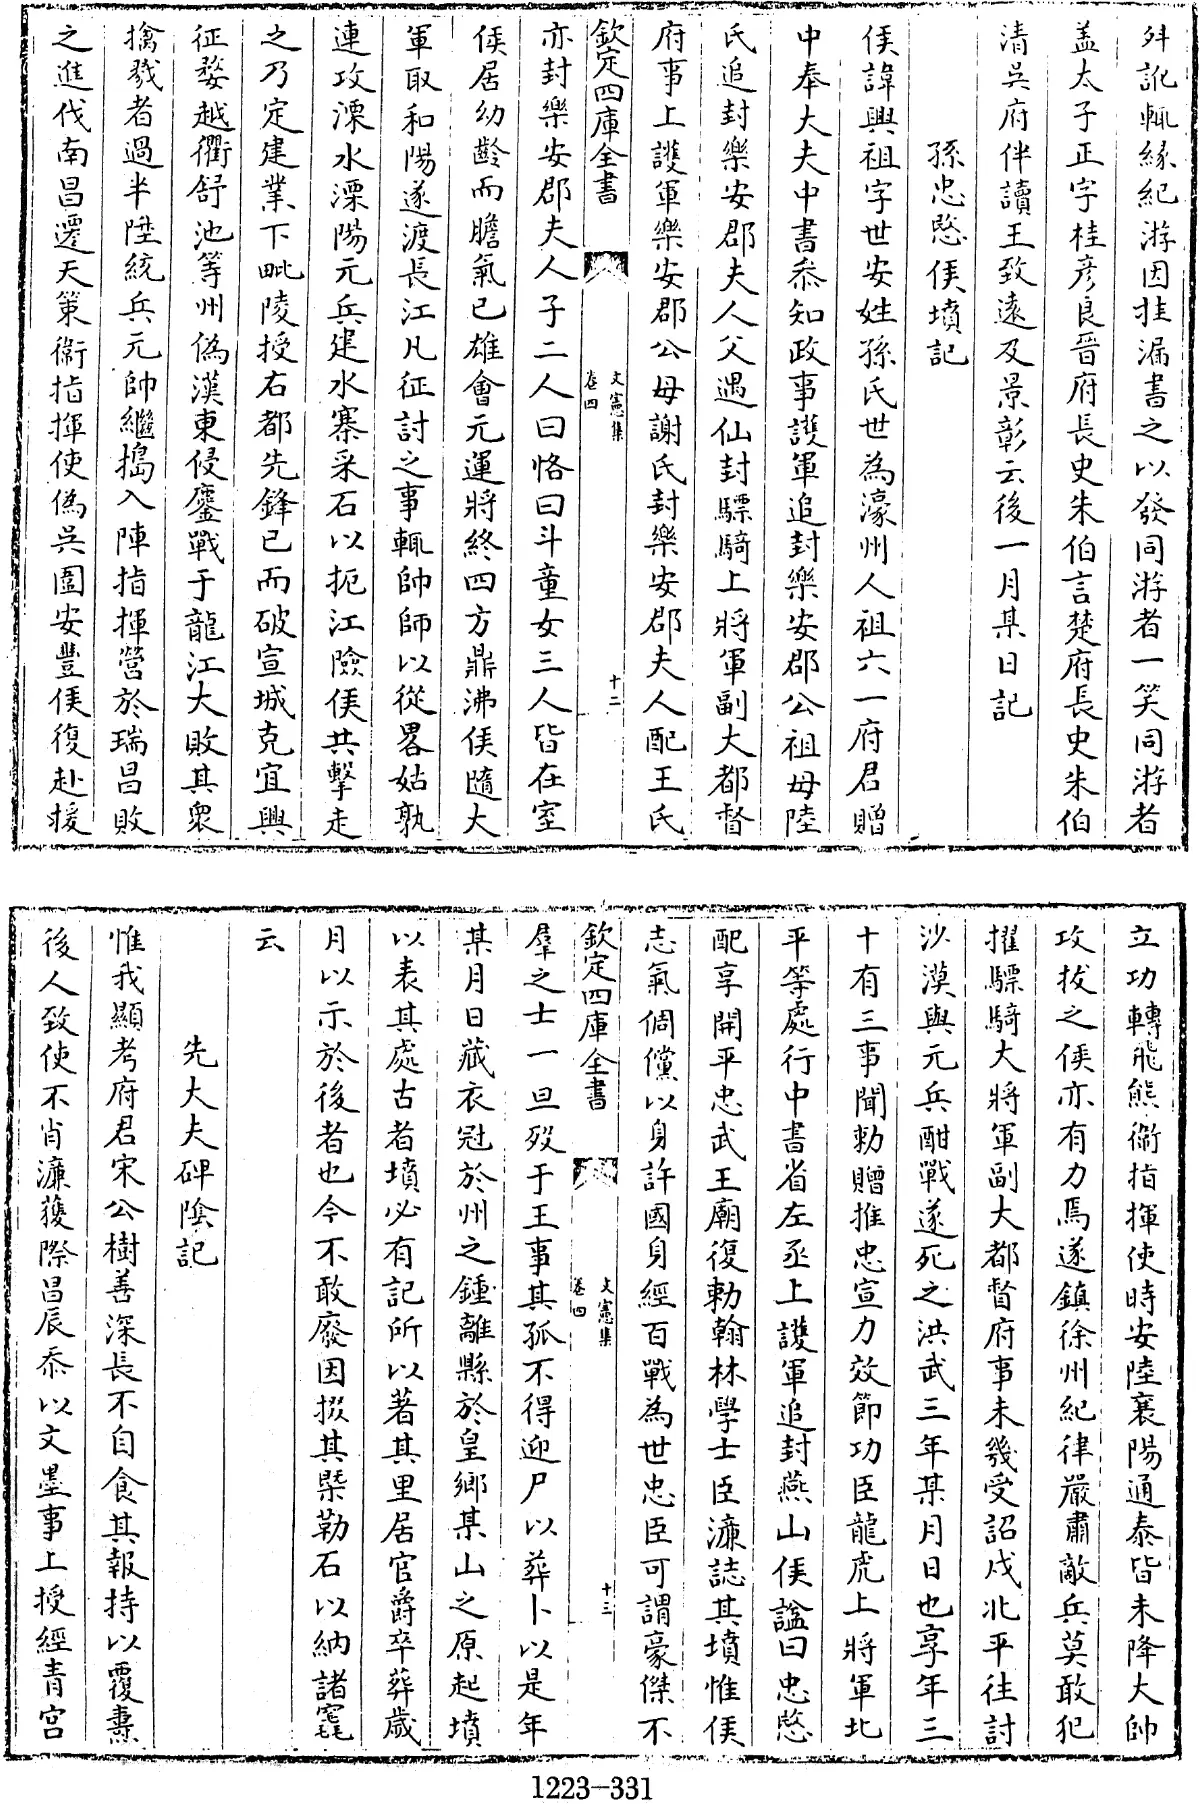 舛訛輒緣紀游因挂漏書之以發同游者一笑同游者
盖太子正字桂彦良晉府長史朱伯言楚府長史朱伯
清吳府伴讀王致遠及景彰云後一月某日記
孫忠愍侯墳記
侯諱興祖字世安姓孫氏世為濠州人祖六一府君贈
中奉大夫中書叅知政事護軍追封樂安郡公祖母陸
氏追封樂安郡夫人父遇仙封驃騎上將軍副大都督
府事上護軍樂安郡公母謝氏封樂安郡夫人配王氏
欽定四庫全書
文憲集
卷四
十二
亦封樂安郡夫人子二人曰恪曰斗童女三人皆在室
侯居幼齡而膽氣已雄會元運將終四方鼎沸侯隨大
軍取和陽遂渡長江凡征討之事輒帥師以從畧姑孰
連攻溧水溧陽元兵建水寨采石以扼江險侯共擊走
之乃定建業下毗陵授右都先鋒已而破宣城克宜興
征婺越衢舒池等州偽漢東侵鏖戰于龍江大敗其衆
擒戮者過半陞統兵元帥繼搗入陣指揮營於瑞昌敗
之進伐南昌遷天策衛指揮使偽吳圍安豐侯復赴援
立功轉飛熊衛指揮使時安陸襄陽通泰皆未降大帥
攻拔之侯亦有力焉遂鎮徐州紀律嚴肅敵兵莫敢犯
擢驃騎大將軍副大都督府事未幾受詔戍北平往討
沙漠與元兵酣戰遂死之洪武三年某月日也享年三
十有三事聞勅贈推忠宣力效節功臣龍虎上將軍北
平等處行中書省左丞上護軍追封燕山侯諡曰忠愍
配享開平忠武王廟復勅翰林學士臣濂誌其墳惟侯
志氣倜儻以身許國身經百戰為世忠臣可謂豪傑不
欽定四庫全書
文憲集
卷四
十三
羣之士一旦歿于王事其孤不得迎尸以葬卜以是年
某月日藏衣冠於州之鍾離縣於皇鄉某山之原起墳
以表其處古者墳必有記所以著其里居官爵卒葬歲
月以示於後者也今不敢廢因掇其槩勒石以納諸窀
云
先大夫碑陰記
惟我顯考府君宋公樹善深長不自食其報持以覆燾
後人致使不肖濂獲際昌辰忝以文墨事上授經青宮
1223-331